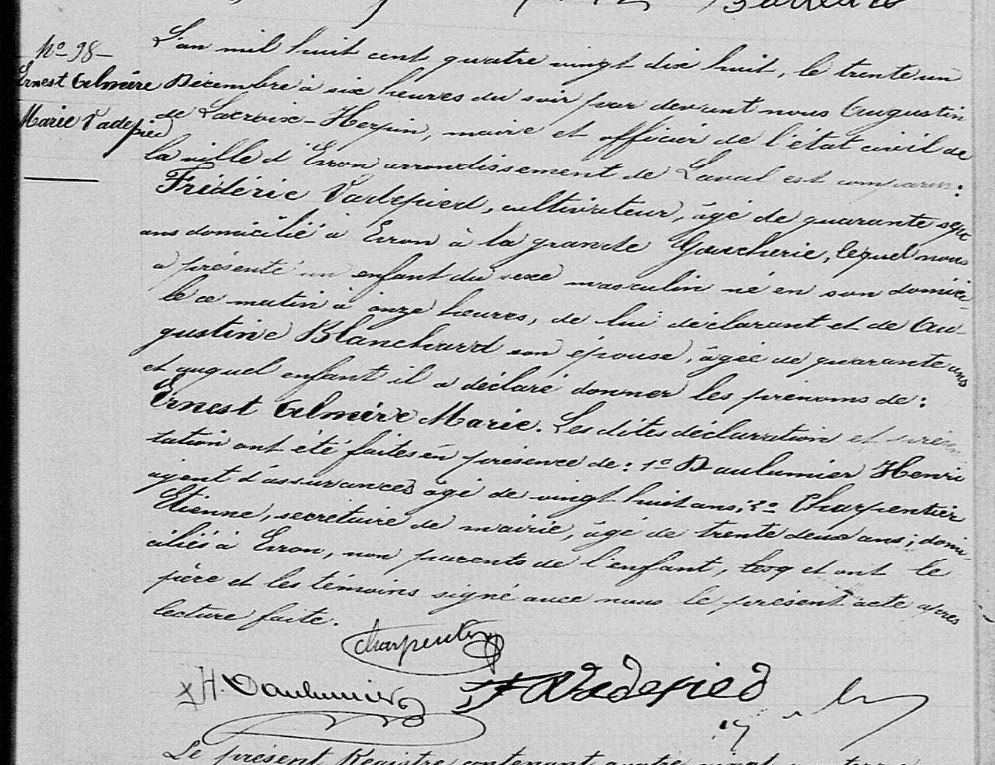 N° 98
Ernest Almire
Marie Vadepied
L'an mil huit cent quatre vingt dix huit, le trente un
Décembre à six heures du soir par devant nous Augustin
de Lacroix-Herpin, maire et officier de l'état civil de
la ville d'Ernon arrondissement de Laval est comparu:
Frédéric Vadepied, cultivateur, âgé de quarante sept
ans domicilié à Ernon à la grande Gaucherie, lequel nous
a présenté un enfant du sexe masculin né en son domici
le ce matin à onze heures, de lui déclarant et de Au
gustine Blanchard son épouse, âgée de quarante ans
et auquel enfant il a déclaré donner les prénoms de:
Ernest Almire Marie. Les dites déclaration et présen
tation ont été faites en présence de: 1° Daulumier Henri
agent d'assurances âgé de vingt huit ans; 2° Charpentier
Etienne, secrétaire de mairie, âgé de trente deux ans; domi
ciliés à Ernon, non parents de l'enfant, et ont le
père et les témoins signé avec nous le présent acte après
lecture faite.
Charpentier
H. Daulumier F Vadepied
Le présent Registre contenant quatre vingt